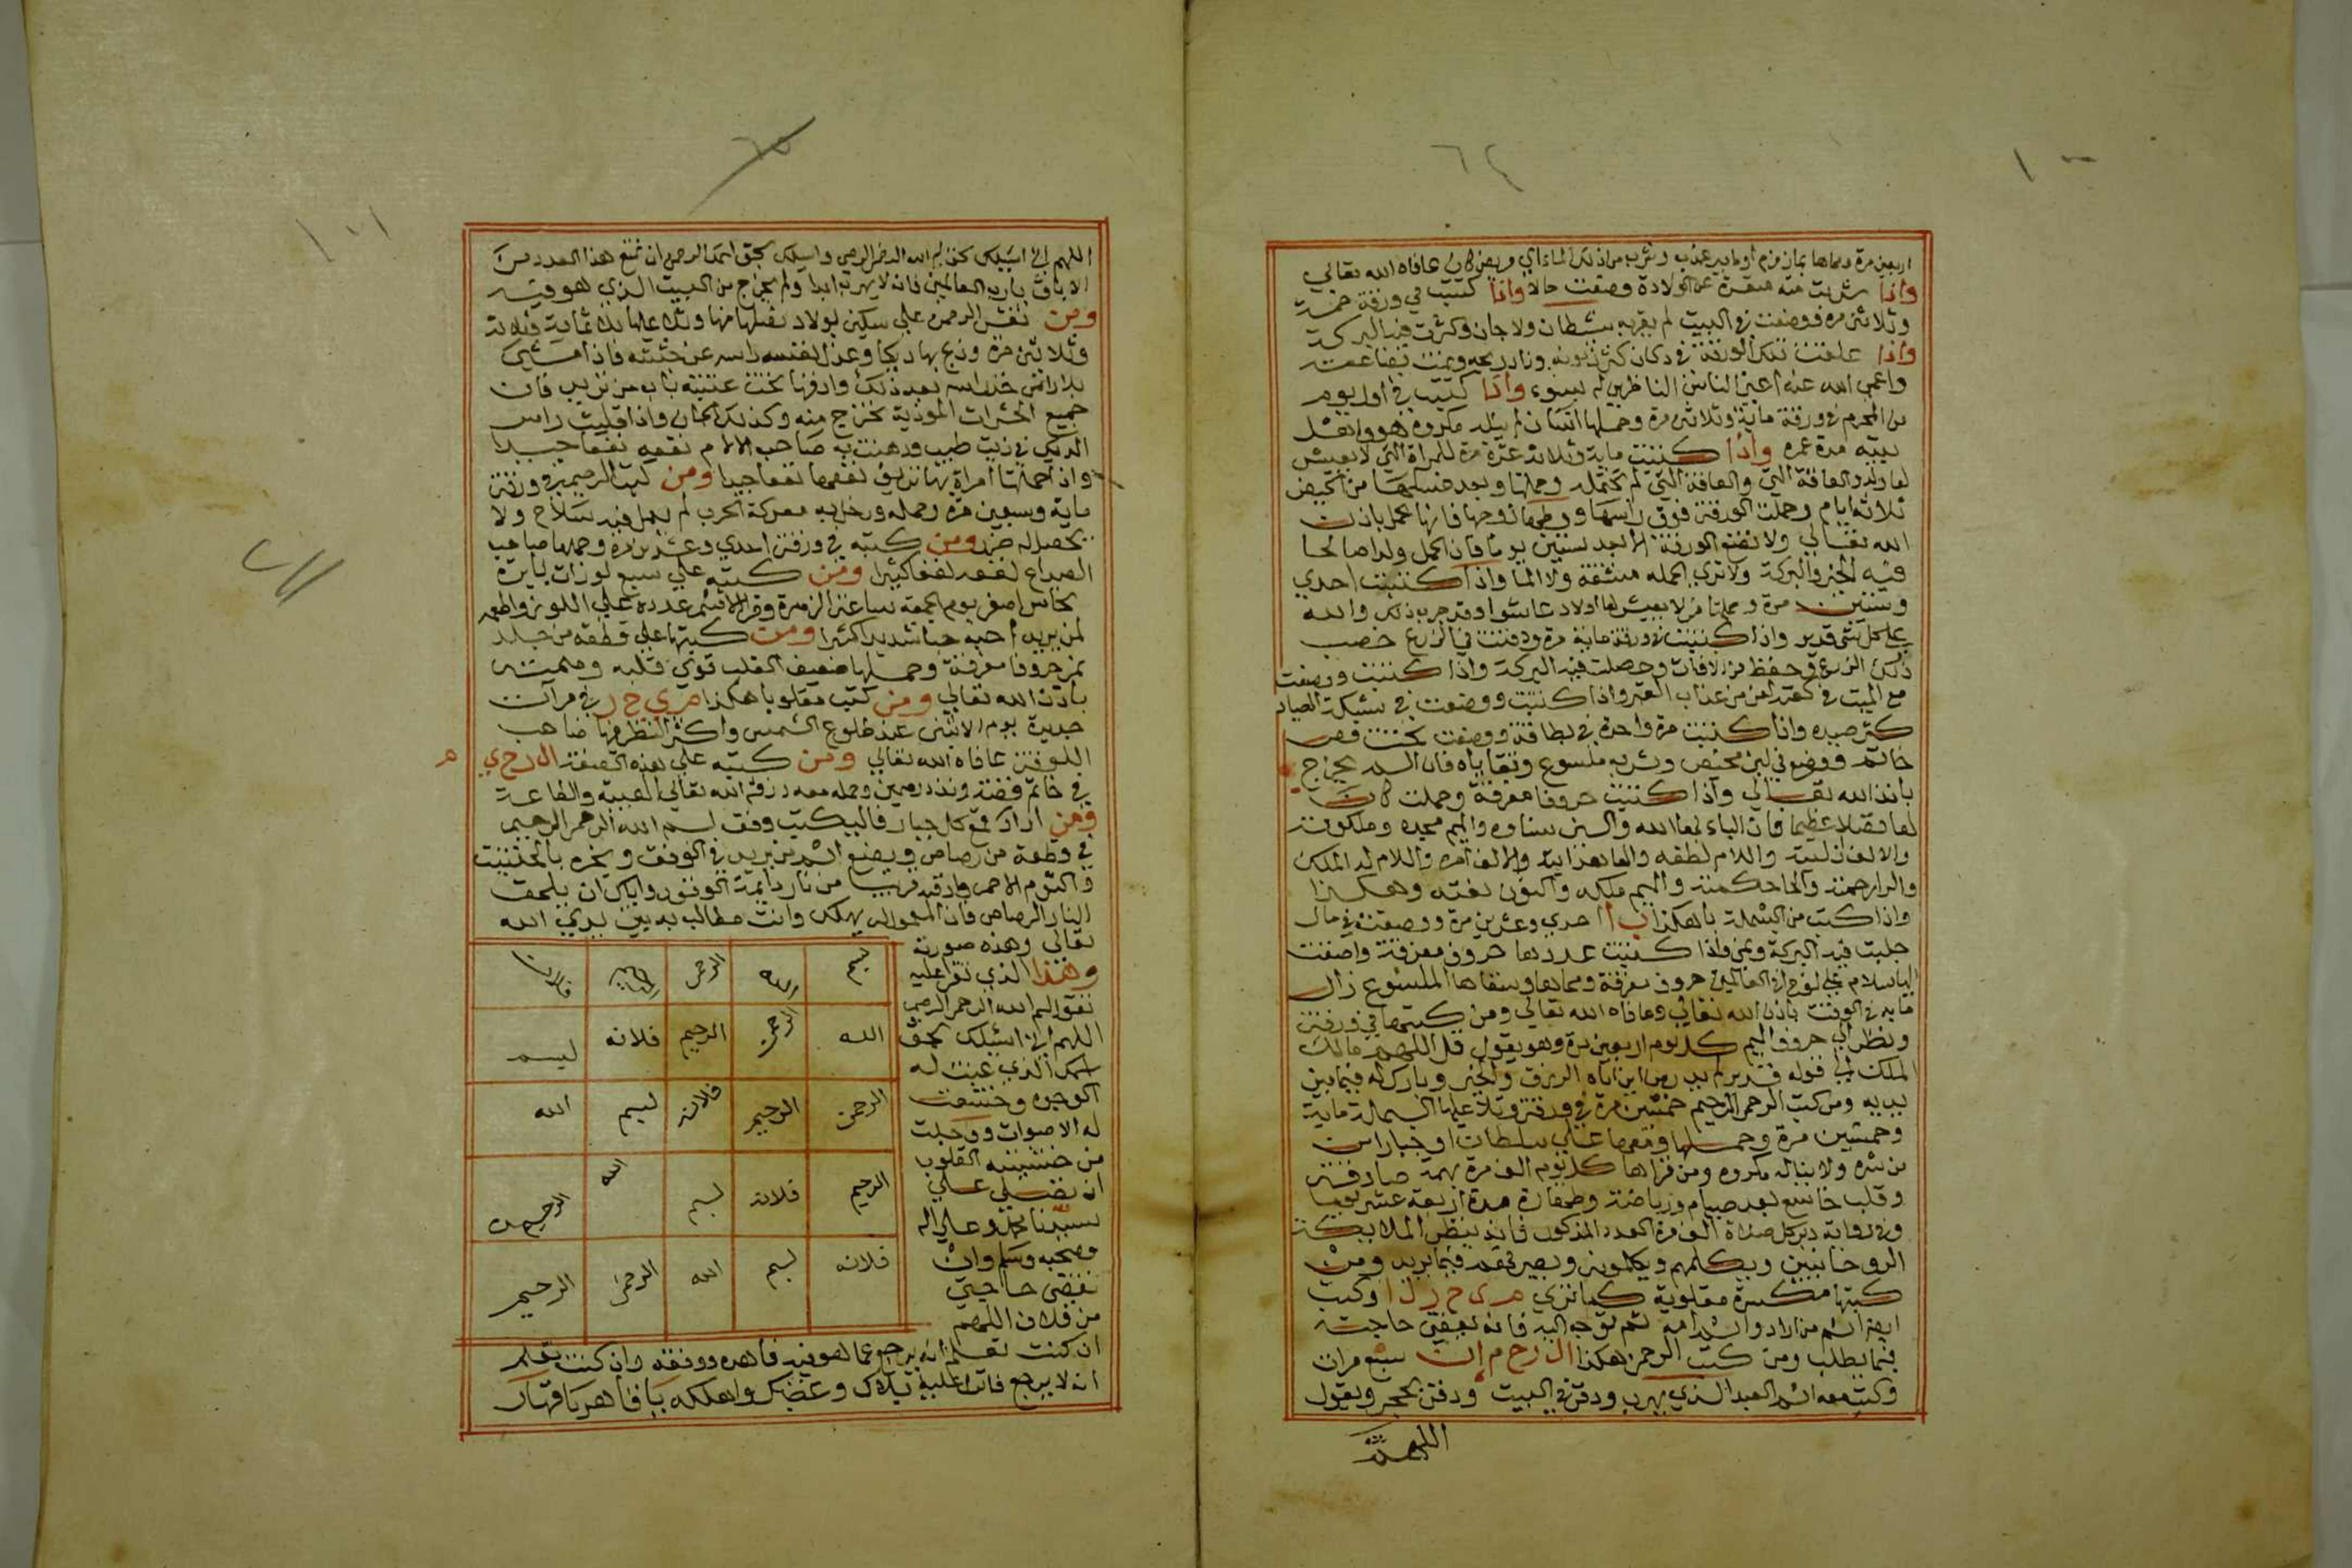 ١٠٠
٦٤
اربعين مرة ومحاها بماء زمزم او ماء بير عذب وشرب من ذلك الماء اي مريض كان عافاه الله تعالي
واذا شربت منه متعسرة عن الولادة وضعت حالا واذا كتبت في ورقة خمسة
وثلاثين مره ووضعت في البيت لم يقربه شيطان ولا جان وكثرت فيه البركة
واذا علقت تلك الورقة في دكان كثر زبونه وزاد ربحه ونمت بضاعته
واعمي الله عنه اعين الناس الناظرين له بسوء واذا كتبت في اول يوم
من المحرم في ورقة ماية وثلاثين مرة وحملها انسان لم ينله مكروه هو واهل
بيته مدة عمره واذا كتبت ماية وثلاثة عشرة مرة للمراة التي لا يعيش
لها ولد والعاقة التي لم تحمل وحملتها وبعد غسلها من الحيض
ثلاثة ايام وحملت الورقة فوق راسها ووطئها زوجها فانها تحمل باذن
الله تعالي ولا تضع الورقة الا بعد ستين يوما فان الحمل ولدا صالحا
فيه الخير والبركة ولا تري لحمله مشقة ولا الما واذا كتبت احدي
وستين مرة وحملتها من لا يعيش لها اولاد عاشوا وقد جرب ذلك والله
علي كل شي قدير واذا كتبت في ورقة ماية مرة ودفنت في الزرع خصب
ذلك الزرع وحفظ من الافات وحصلت فيه البركة واذا كتبت ووضعت
مع الميت في كفنه امن من عذاب القبر واذا كتبت ووضعت في شبكة الصياد
كثر صيده واذا كتبت مرة واحدة في بطاقة ووضعت تحت فص
خاتم ووضع في لبن مخيض وشربه ملسوع وتقاياه فان السم يخرج
باذن الله تعالي واذا كتبت حروفا مفرقة وحملت كان
لها فضلا عظيما فان الباء بهاء الله والسين سناوه والميم مجده وملكوته
والالف ازليته واللام لطفه والهاء هدايته والالف امره واللام له الملك
والرا رحمته والحا حكمته والميم ملكه والنون نعته وهكذا
واذا كتب من البسملة با هكذا ب ا احدي وعشرين مرة ووضعت في مال
جلبت فيه البركة ونمي واذا كتبت عددها حروف مفرقة واضفت
اليها سلام علي نوح في العالمين حروف مفرقة ومحاها وسقاها الملسوع زال
ما به في الوقت باذن الله تعالي وعافاه الله تعالي ومن كتبها في ورقة
ونظر الي حروف الميم كل يوم اربعين مرة وهو يقول قل اللهم مالك
الملك الي قوله قدير لم يدر من اين اتاه الرزق والخير وبارك له فيما بين
يديه ومن كتب الرحمن الرحيم خمسين مرة في ورقة وتلا عليها البسملة ماية
وخمسين مرة وحملها ودخل بها علي سلطان او جبار امن
من شره ولا يناله مكروه ومن قراها كل يوم الف مرة بهمة صادقة
وقلب خاشع بعد صيام ورياضة وطهارة مدة اربعة عشر يوما
وفي رواية دبر كل صلاة الف مرة العدد المذكور فانه ينظر الملايكة
الروحانيين ويكلمهم ويكلمونه ويصير قصده فيما يريد ومن
كتبها مكسرة مقلوبة كما تري م ي ح ر ل ا وكتب
ايضا اسم من اراد واسم امه ثم توجه اليه فانه يقضي حاجته
فيما يطلب ومن كتب الرحمن هكذا ال ر ح م ا ن سبع مرات
وكتب معه اسم العبد الذي يهرب ودفن في البيت ودفن بحجر ويقول
اللهم
١٠١
٦٥
اللهم اني اسئلك بحق بسم الله الرحمن الرحيم واسئلك بحق اسمك الرحمن ان تمنع هذا العبد من
الاباق يا رب العالمين فانه لا يهرب ابدا ولم يخرج من البيت الذي هو فيه
ومن نقش الرحمن علي سكين
وثلاثين مرة وذبح بها ديكا وعزل بنفسه راسه عن جثته فاذا مشي
بلا راس خذ راسه بعد ذلك وادفنها تحت عتبة باب من تريد فان
جميع الحشرات الموذية تخرج منه وكذلك الجان واذا قليت راس
الديك في زيت طيب ودهنت به صاحب الالام نفعه نفعا جيدا
واذا حملتها امراة بها نزيف نفعها نفعا جيدا ومن كتب الرحيم في ورقة
ماية وسبعين مرة وحمله ودخل به معركة الحرب لم يعمل فيه سلاح ولا
يحصل له ضرر ومن كتبه في ورقة احدي وعشرين مرة وحملها صاحب
الصداع نفعه نفعا كثيرا ومن كتبه علي سبع لوزات بابرة
نحاس اصفر يوم الجمعة ساعة الزهرة وقرا الاسم عدده علي اللوز واطعمه
لمن يريد احبه حبا شديدا كثيرا ومن كتبها علي قطعة من جلد
نمر حروفا مفرقة وحملها ضعيف القلب قوي قلبه وهمته
باذن الله تعالي ومن كتب مقلوبا هكذا م ي ح ر في مرآت
جديدة يوم الاثنين عند طلوع الشمس واكثر النظر فيها صاحب
اللوقة عافاه الله تعالي ومن كتبه علي هذه الصفة ال ر ح ي م
في خاتم فضة وزنه درهمين وحمله معه رزقه الله تعالي الهيبة والطاعة
ومن اراد قمع كل جبار فاليكتب وفق بسم الله الرحمن الرحيم
في قطعة من رصاص ويضع اسم من يريد في الوفق ويبخره بالحلتيت
والثوم الاحمر وادفنه قريبا من نار دايمة الوقود واياك ان يلحق
النار الرصاص فان المعمول له يهلك وانت مطالب به بين يدي الله
تعالي وهذه صورته
وهذا الذي تقرا عليه
تقول بسم الله الرحمن الرحيم
اللهم اني اسئلك بحق
اسمك الذي عنت له
الوجوه وخشعت
له الاصوات ووجلت
من خشيته القلوب
ان تصلي علي
سيدنا محمد وعلي اله
وصحبه وسلم وان
تقضي حاجتي
من فلان اللهم
بسم الله الرحمن الرحيم فلانة
الله الرحمن الرحيم فلانه بسم
الرحمن الرحيم فلانة بسم الله
الرحيم فلانة بسم الله الرحيم
فلانه بسم الله الرحمن الرحيم
ان كنت تعلم انه يرجع عما هو فيه فاهده ووفقه وان كنت تعلم
انه لا يرجع فانزل عليه بلاك وغضبك واهلكه يا قاهر يا قهار